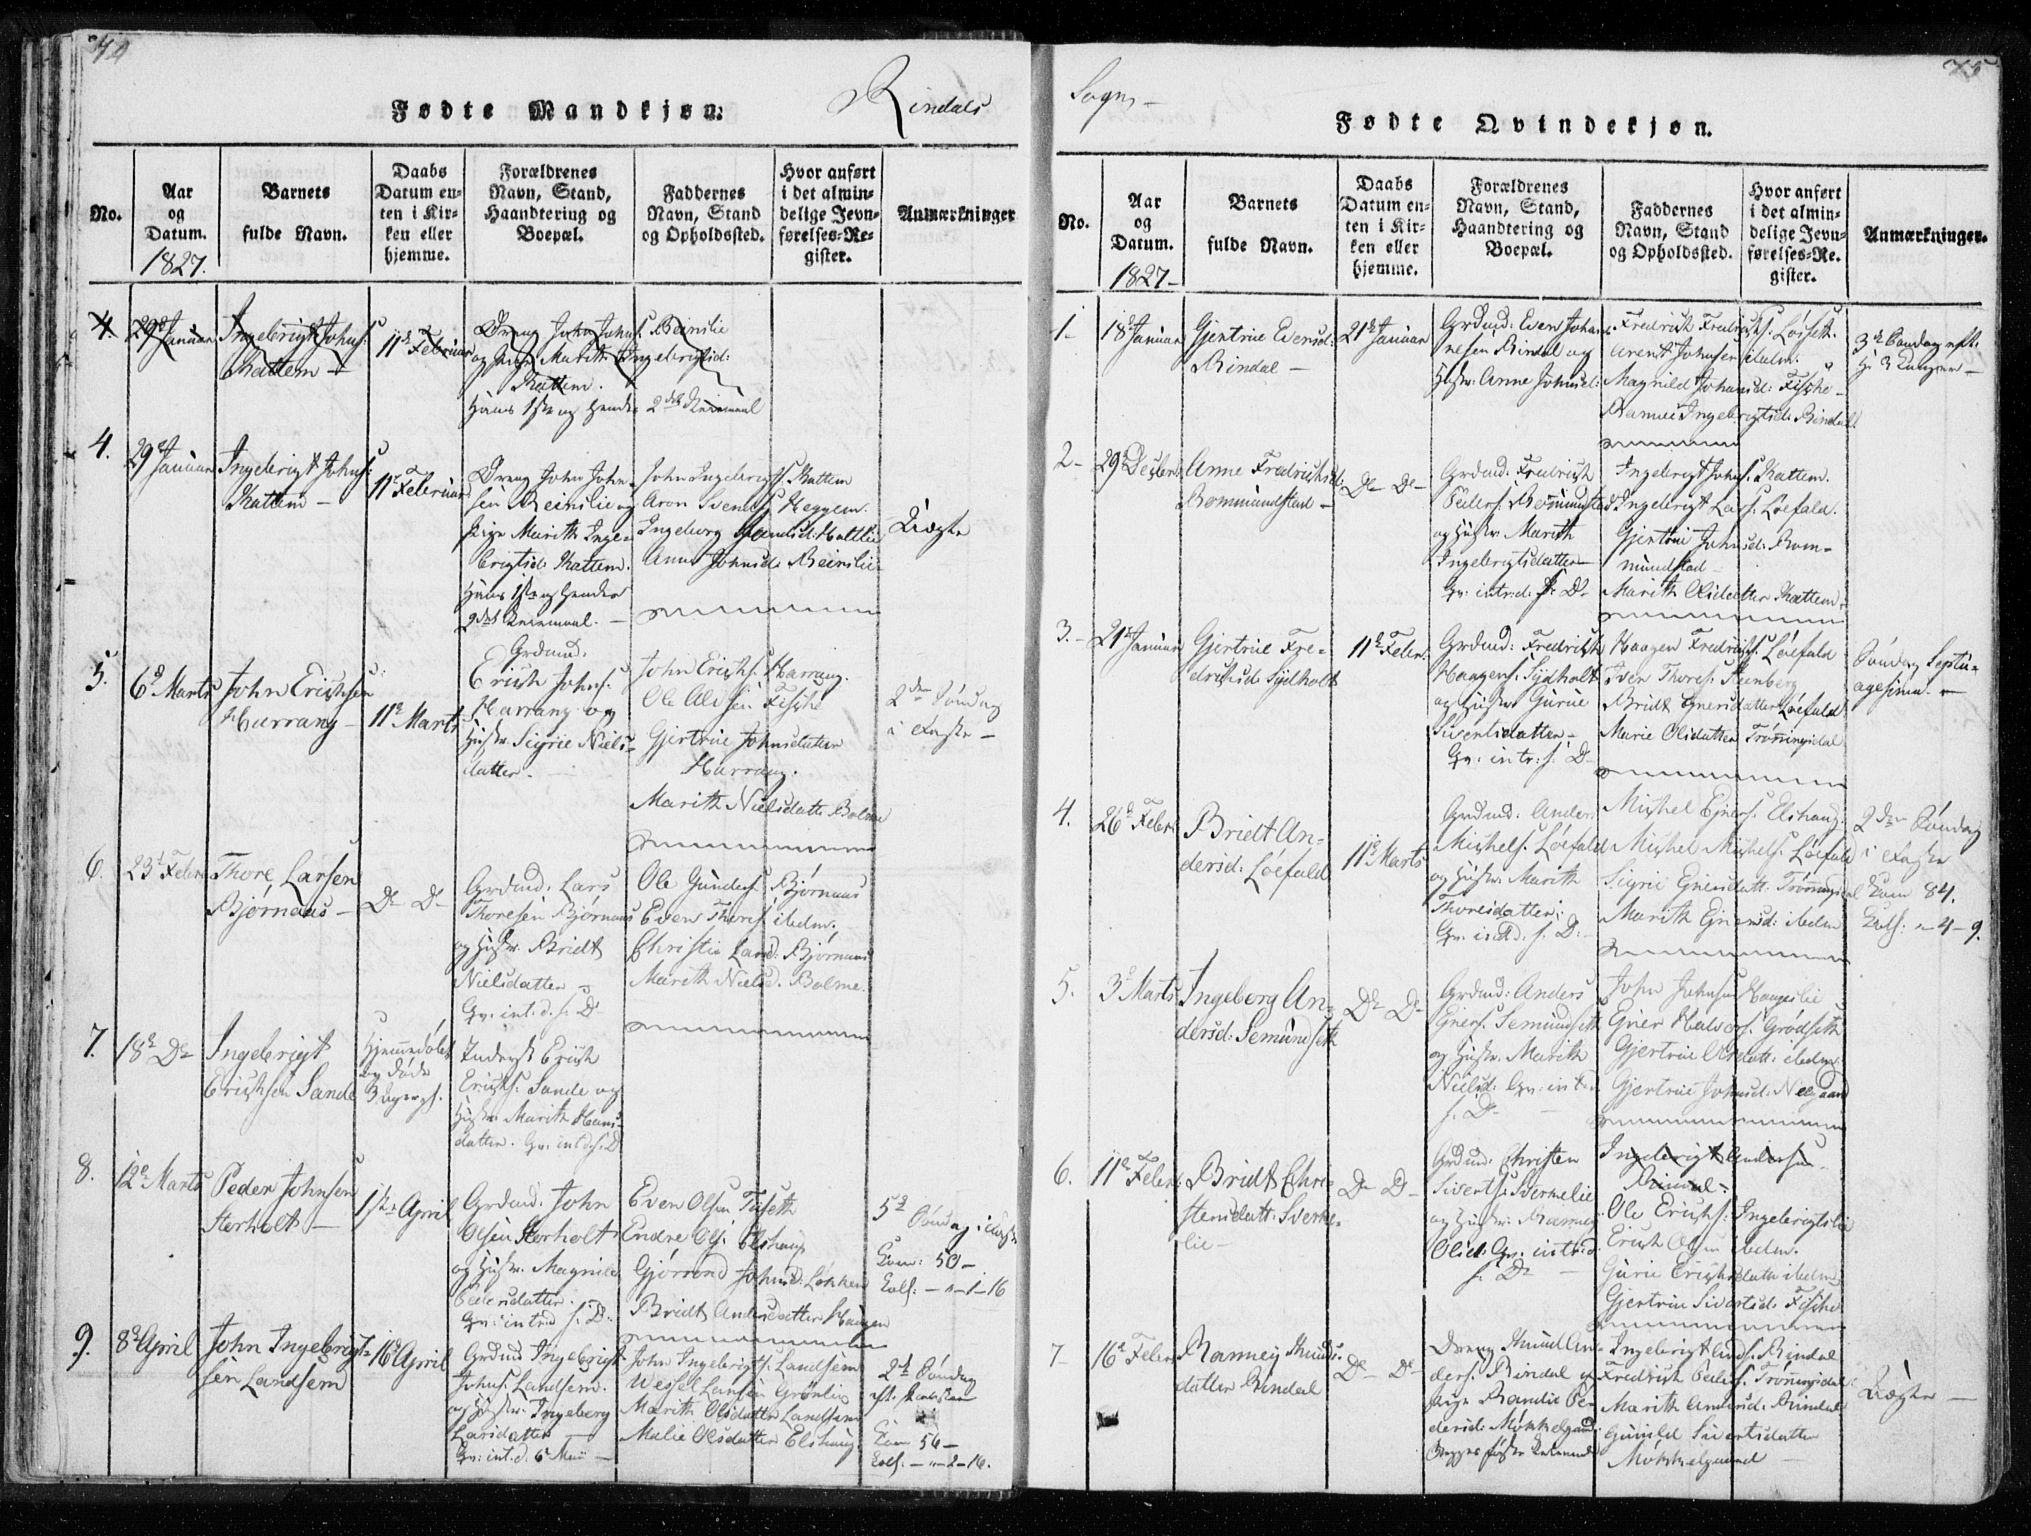 74
Fødte Mandkjøn.
Rindals
No.
Aar
og
Datum.
1827.
Barnets
fulde Navn.
Daabs
Datum en-
ten i Kir-
ken eller
hjemme.
Forældrenes
Navn, Stand,
Haandtering og
Boepæl.
Faddernes
Navn, Stand
og Opholdssted.
Hvor anført
i det almin-
delige Jevn-
førelses-Re-
gister.
Anmærkninger
4.
29d Januar
Ingebrigt Johns:
Kattem –
11te Februar
Dreng John Johns: Reinslie
og Pige Marith Ingebrigtsd:
Kattem.
Hans 1ste og Hendes 2det Leiermaal
4.
29d Januar
Ingebrigt Johns:
Kattem –
11te Februar
Dreng John John-
sen Reinslie og
Pige Marith Inge-
brigtsd: Kattem.
Hans 1ste og Hendes
2det Leiermaal. –
John Ingebrigts: Kattem
Aron Svends: Heggem.
Ingeborg Hansd: Kattlie
Anne Johnsd: Reinslie
Uægte
5.
6d Marts
John Erichsen
Harrang –
11te Marts
Grdmd:
Erich Johns:
Harrang og
Hustr: Sigrie Niels-
datter. –
John Erichs: Harrang.
Ole Olsen Fiske
Gjertrue Johnsdatter
Harrang.
Marith Nielsdatter Bolme
2den Søndag
i Faste –
6.
23d Febr:
Thore Larsen
Bjørnaas –
Do Do
Grdmd: Lars
Thoresen Bjørnaas
og Hustr: Bridt
Nielsdatter
Gr: int. d. s: D.
Ole Gunders: Bjørnaas
Even Thores: ibdm.
Christie Larsd: Bjørnaas
Marith Nielsd: Bolme.
7.
18d Do
Ingebrigt
Erichsen Sande
Hjemmedøbt
og døde
Inderst Erich
Erichs: Sande og
Hustr: Marith Hans-
datter. Gr: int. d. s: D
8.
12d Marts
Peder Johnsen
Storholt –
1ste April
Grdmd: John
Olsen Storholt
og Hustr: Magnild
Pedersdatter.
Gr: int. d. s: D.
Even Olsen Fuseth
Endre Ols: Elshaug
Gjørond Johnsd: Løkken
Bridt Andersdatter Haugen
5d
Søndag i Faste
Com: 50 –
– 1 – 16
9.
8d April
John Ingebrigt-
sen Landsem
16d April
Grdmd Ingebrigt
Johns: Landsem.
og Hustr: Ingeborg
Larsdatter
Gr: int. d. 6 Mai –
John Ingebrigts: Landsem
Wessel Larsen Grønlie
Marith Olsdatter Landsem
Malie Olsdatter Elshaug
2d Søndag
eft: Paasken
Com 56 –
– 2 – 16.
75
Sogn –
Fødte Qvindekjøn.
No.
Aar
og
Datum.
1827 –
Barnets
fulde Navn.
Daabs
Datum en-
ten i Kir-
ken eller
hjemme.
Forældrenes
Navn, Stand,
Haandtering og
Boepæl.
Faddernes
Navn, Stand
og Opholdssted.
Hvor anført
i det almin-
delige Jevn-
førelses-Re-
gister.
Anmærkninger.
1 –
18d Januar
Gjertrue Evensd:
Rindal –
21de Januar
Grdmd: Even Johan-
nesen Rindal og
Hustr: Anne Johnsd:
Fredrich Fredrichs: Løfseth.
Arent Johnsen ibdm.
Magnild Johnsd: Fiske –
Rannei Ingebrigtsd: Rindal
3de Søndag eft:
H: 3 Konger –
2 –
29d Decbr:
Anne Fredrichsd:
Rommundstad –
Do Do –
Grdmd: Fredrich
Peders: Rommundstad
og Hustr: Marith
Ingebrigtsdatter –
Gr: intr: d. s: D.
Ingebrigt Johns: Kattem.
Ingebrigt Lars: Løefald.
Gjertrue Johnsd: Rom-
mundstad –
Marith Olsdatter Kattem.
3. –
21d Januar
Gjertrue Fre-
drichsd: Sydholt
11te Febr.
Grdmd: Fredrich
Haagens: Sydholt
og Hustr: Gurue
Sivertsdatter –
Gr: intr: s: D –
Haagen Fredrichs: Løefald
Iver Thores: Steenberg
Bridt Enersdatter Løefald
Marie Olsdatter Trønningsdal
Søndag Septu-
agesima. –
4.
26d Febr:
Bridt An-
dersd: Løefald
11te Marts
Grdmd: Anders
Michels: Løefald
og Hustr: Marith
Thoresdatter:
Gr: int. d. s: D: –
Michel Eners: Elshaug
Michel Michels: Løefald
Sigrie Enersdatt: Trønningsdal
Marith Enersd: ibdm
2den Søndag
i Faste
Com 84.
– 4 – 9.
5.
3d Marts
Ingeborg An-
dersd: Semundseth
Do Do –
Grdmd: Anders
Eners: Semundseth
og Hustr: Marith
Nielsd: Gr: int. d
s: D –
John Johnsen Haugslie
Ener Halvors: Grødseth
Gjertrue Olsdatt: ibdm.
Gjertrue Johnsd: Negaard
6.
11te Febr:
Bridt Chri-
stensdatt: Sverke-
lie –
Do Do –
Grdmd: Christen
Siverts: Sverkelie
og Hustr: Rannei
Olsd: Gr: intr: d.
s: Do
Ingebrigt Andersen
Rindal –
Ole Erichs: Ingebrigtslie
Erich Olsen ibdm.
Gurie Erichsdatt ibdm.
Gjertrue Sivertsd: Fiske
7
16d Febr:
Rannei Knuds-
datter Rindal
Do Do –
Dreng Knud An-
ders: Rindal og
Pige Randie Pe-
dersd: Møkkelgaard
Begges første Leiermaal
Ingebrigt Ands: Rindal
Fredrich Peders: Trønningsdal
Marith Andersd: Rindal
Gunild Sivertsdatter
Møkkelgaard –
Uægte –